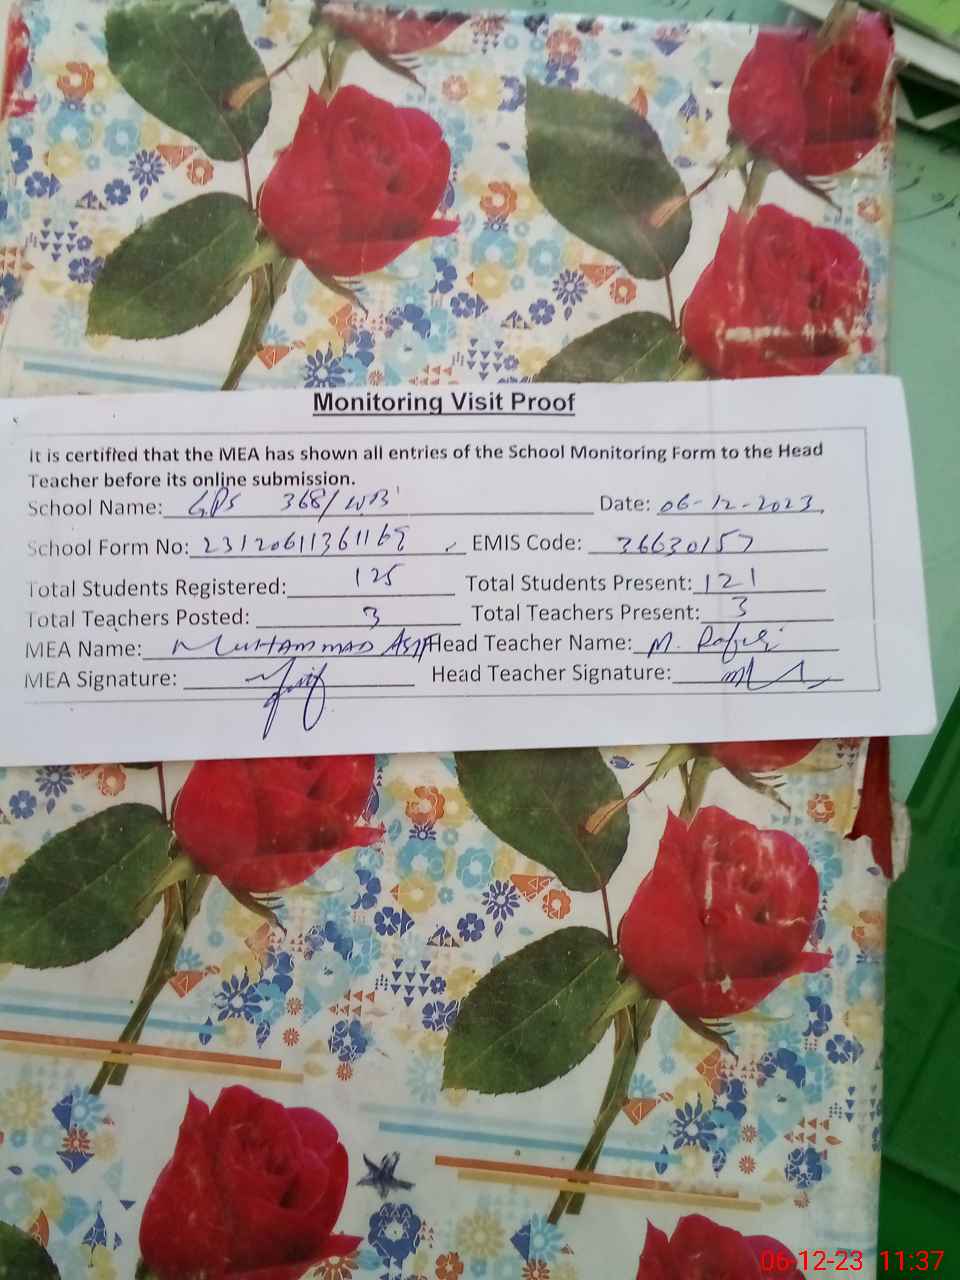 Monitoring Visit Proof
It is certified that the MEA has shown all entries of the School Monitoring Form to the Head
Teacher before its online submission.
School Name: GPS 368/WB Date: 06-12-2023
School Form No: EMIS Code: 36630157
Total Students Registered: 125 Total Students Present: 121
Total Teachers Posted: 3 Total Teachers Present: 3
MEA Name: MUHAMMAD ASIF Head Teacher Name: M.
MEA Signature: Head Teacher Signature:
06-12-23 11:37